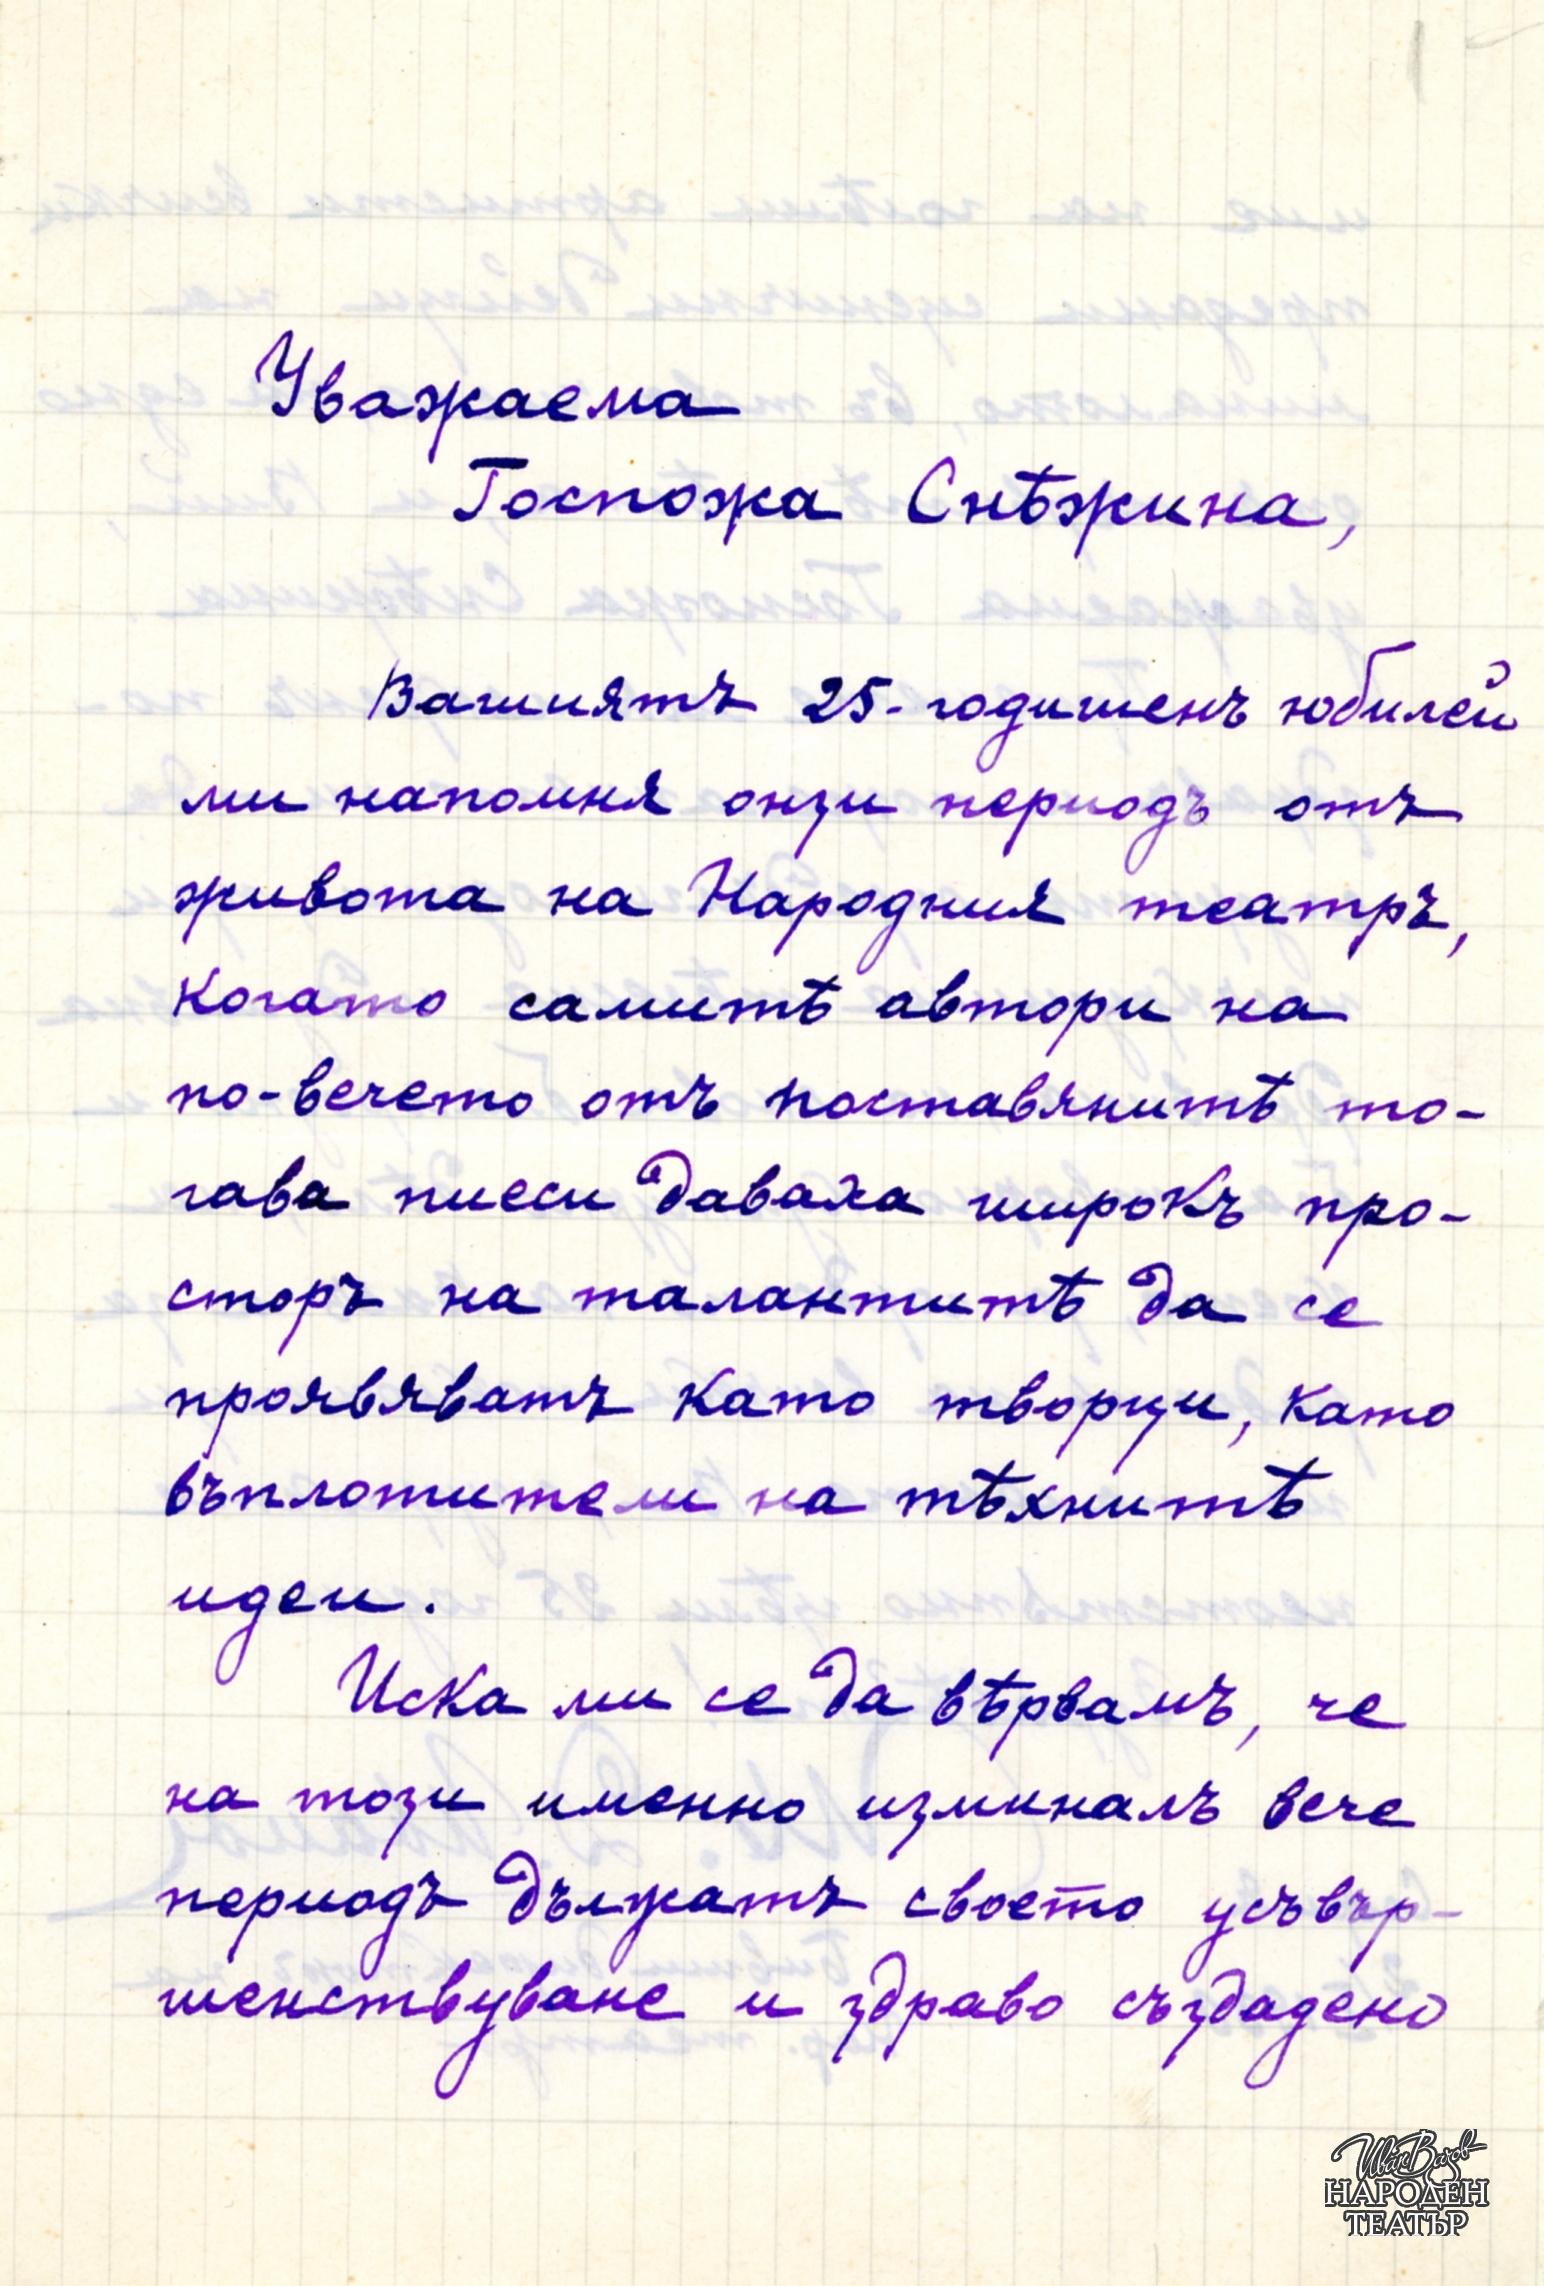 Уважаема
Госпожа Снѣжина,
Вашиятъ 25-годишенъ юбилей
ми напомня онзи периодъ отъ
живота на Народния театръ,
когато самитѣ автори на
по-вечето отъ поставянитѣ то-
гава пиеси даваха широкъ про-
сторъ на талантитѣ да се
проявяватъ като творци, като
въплотители на тѣхнитѣ
идеи.
Иска ми се да вѣрвамъ, че
на този именно изминалъ вече
периодъ дължатъ своето усъвър-
шенствуване и здраво създадено
Иван Вазов
НАРОДЕН
ТЕАТЪР